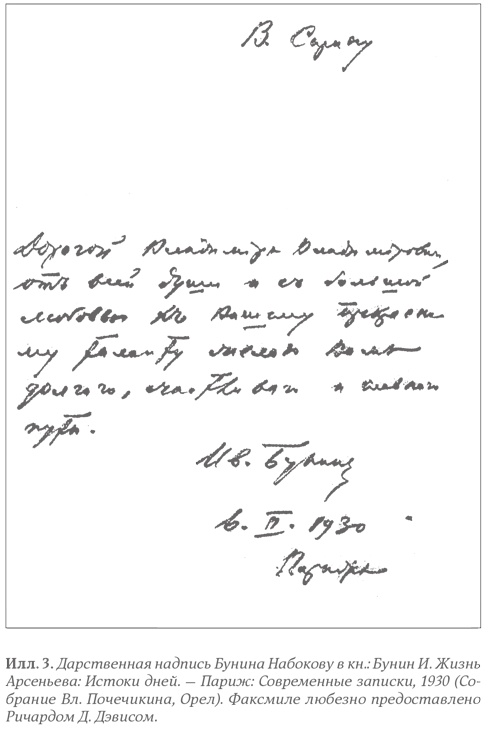 В. Сирину
Дорогой Владиміръ Владиміровичъ,
отъ всей души и съ большой
любовью къ Вашему прекрасно
му таланту желаю Вамъ
долгаго, счастливаго и славнаго
пути.
Ив. Бунинъ
6. II. 1930
Парижъ
Илл. 3. Дарственная надпись Бунина Набокову в кн.: Бунин И. Жизнь
Арсеньева: Истоки дней. — Париж: Современные записки, 1930 (Со-
брание Вл. Почечикина, Орел). Факсмиле любезно предоставлено
Ричардом Д. Дэвисом.